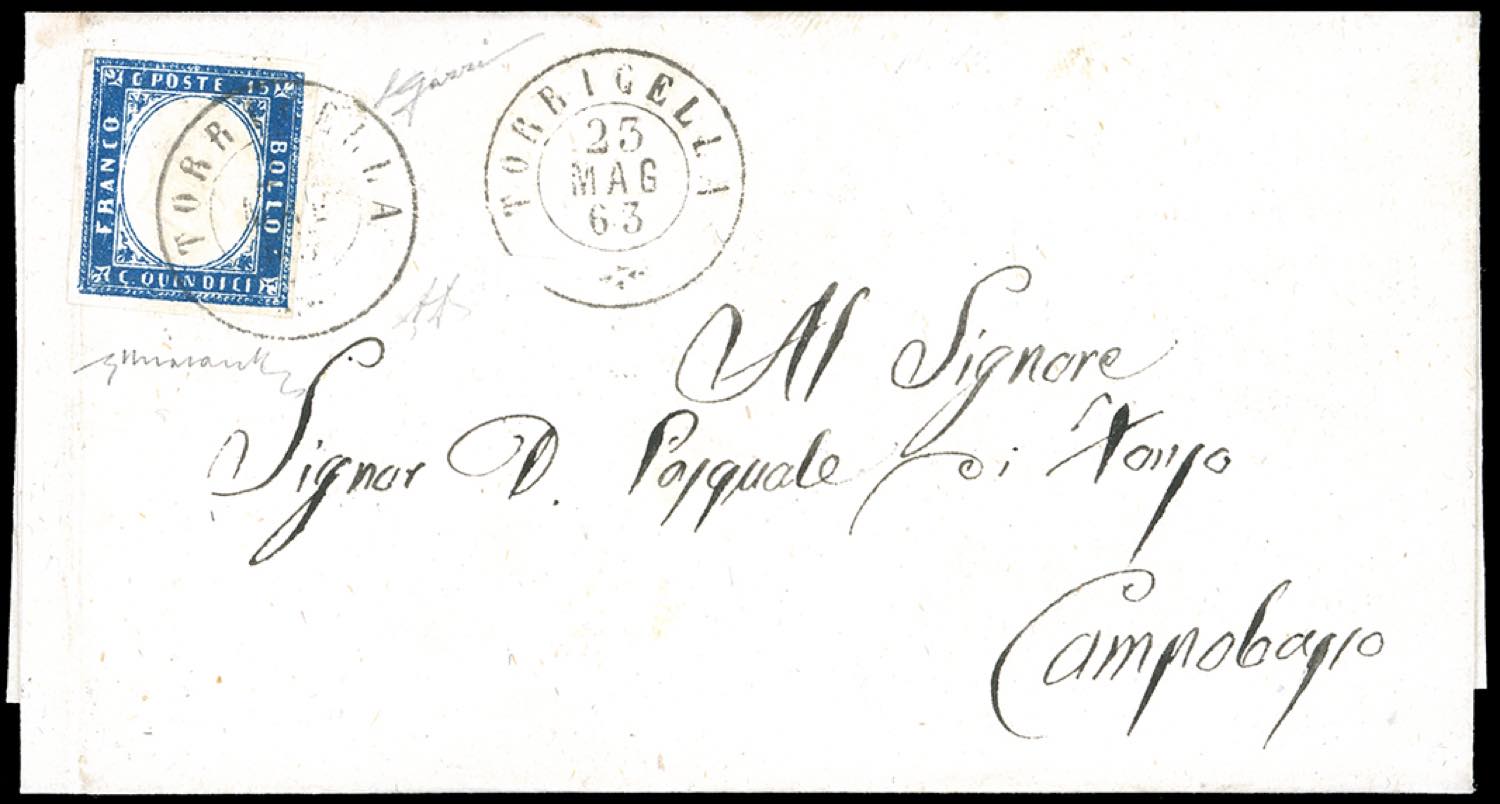 C POSTE 15
FRANCO
BOLLO
C. QUINDICI
TORRICELLA
TORRICELLA
23
MAG
63
Al Signore
Signor D. Pasquale Di
Campobasso